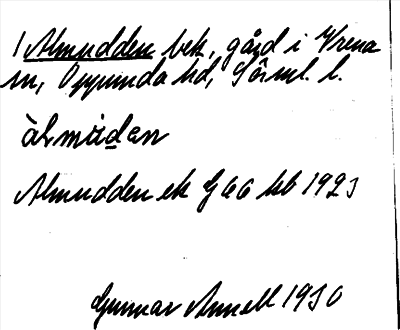 1 Almudden bek, gård i Vrena
sn, Oppunda hd, Sörml. l.
àlmùdan
Almudden ek G 66 kb 1923
Gunnar Annell 1930